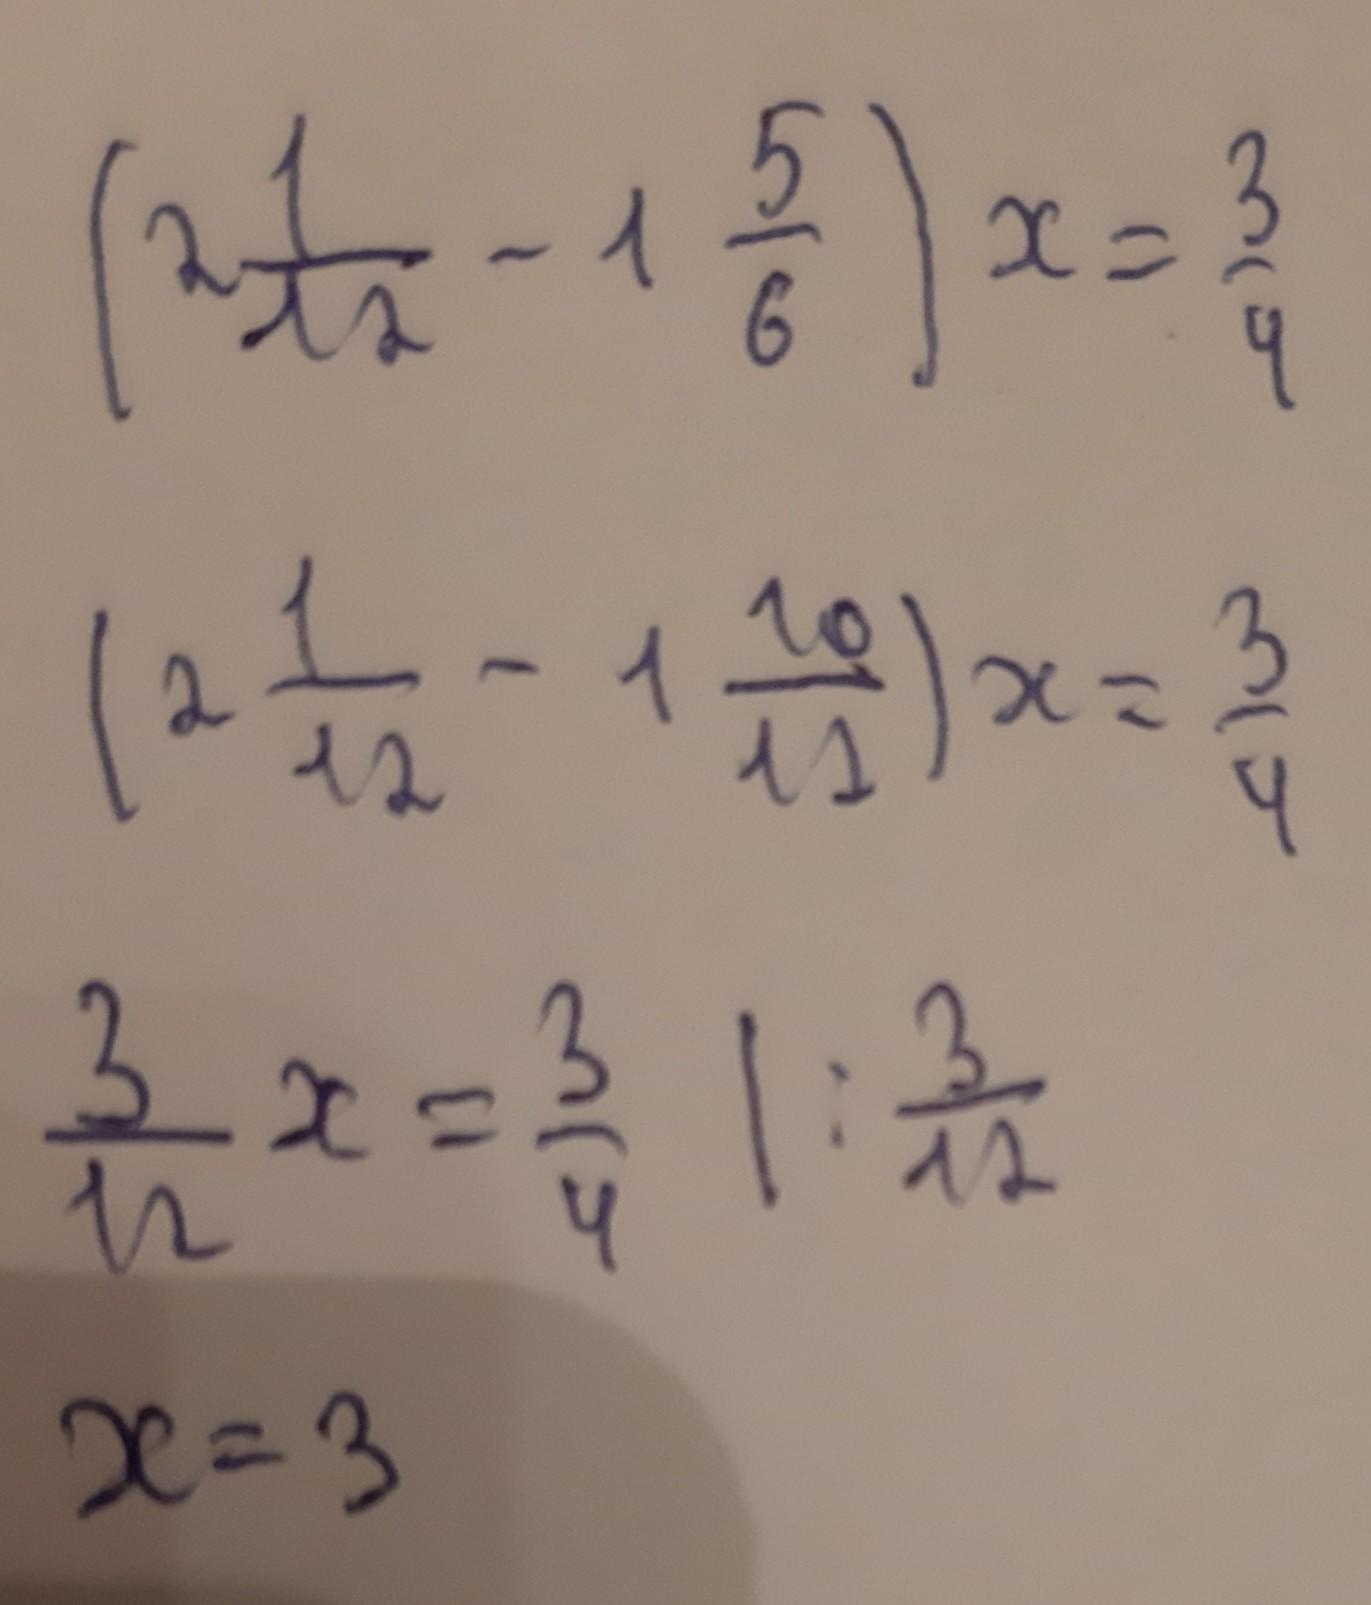 (2 1/12 - 1 5/6) x = 3/4
(2 1/12 - 1 10/12) x = 3/4
3/12 x = 3/4 | : 3/12
x = 3